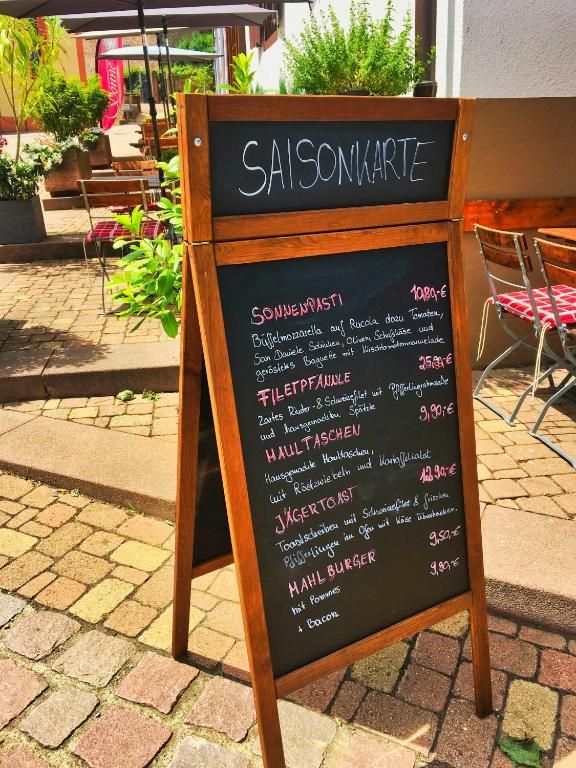 SAISONKARTE
SONNENPASTI 10,80,-€
Büffelmozzarella auf Rucola dazu Tomaten,
San Daniele Schinken, Oliven, Schafskäse und
geröstetes Baguette mit Kirschtomatenmarmelade
FILETPFANNLE 25,90-€
Zartes Rinder- & Schweinefilet mit Pfifferlingrahmsoße
und hausgemachten Spätzle
MAULTASCHEN 9,90,-€
Hausgemachte Maultaschen,
mit Röstzwiebeln und Kartoffelsalat
JÄGERTOAST 12,90-€
Toastscheiben mit Schweinefilet & frischen
Pfifferlingen im Ofen mit Käse überbacken.
MAHLBURGER 9,50,-€
mit Pommes 9,90,-€
+ Bacon